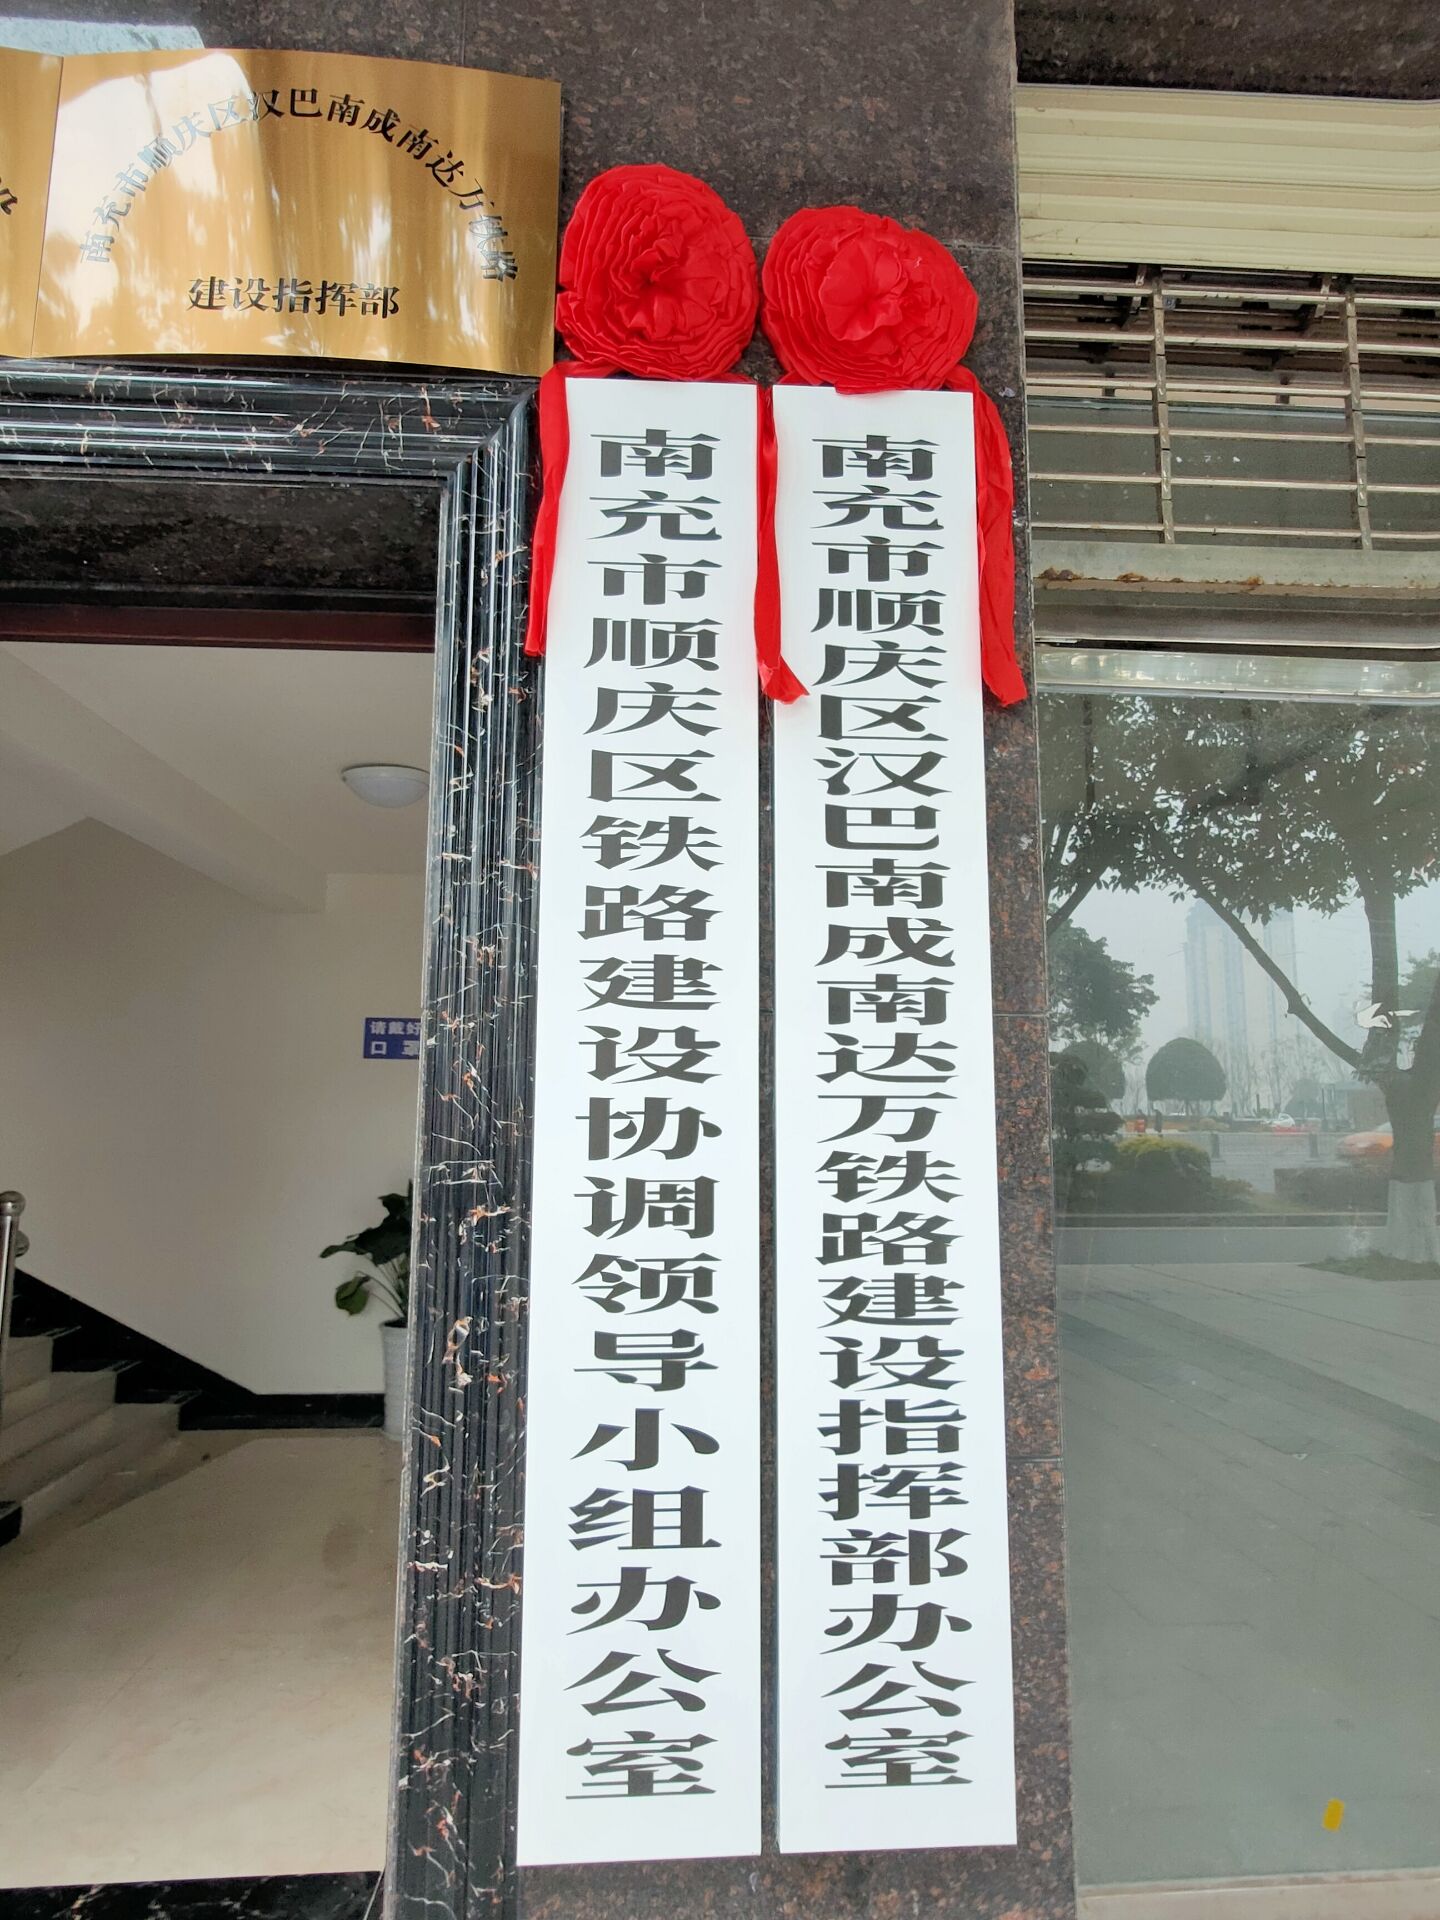 南充市顺庆区汉巴南成南达万铁路
建设指挥部
南充市顺庆区铁路建设协调领导小组办公室
南充市顺庆区汉巴南成南达万铁路建设指挥部办公室
请戴好
口罩